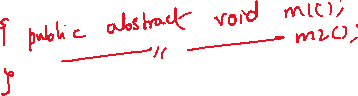 { public abstract void m1();
—— " —— m2();
}